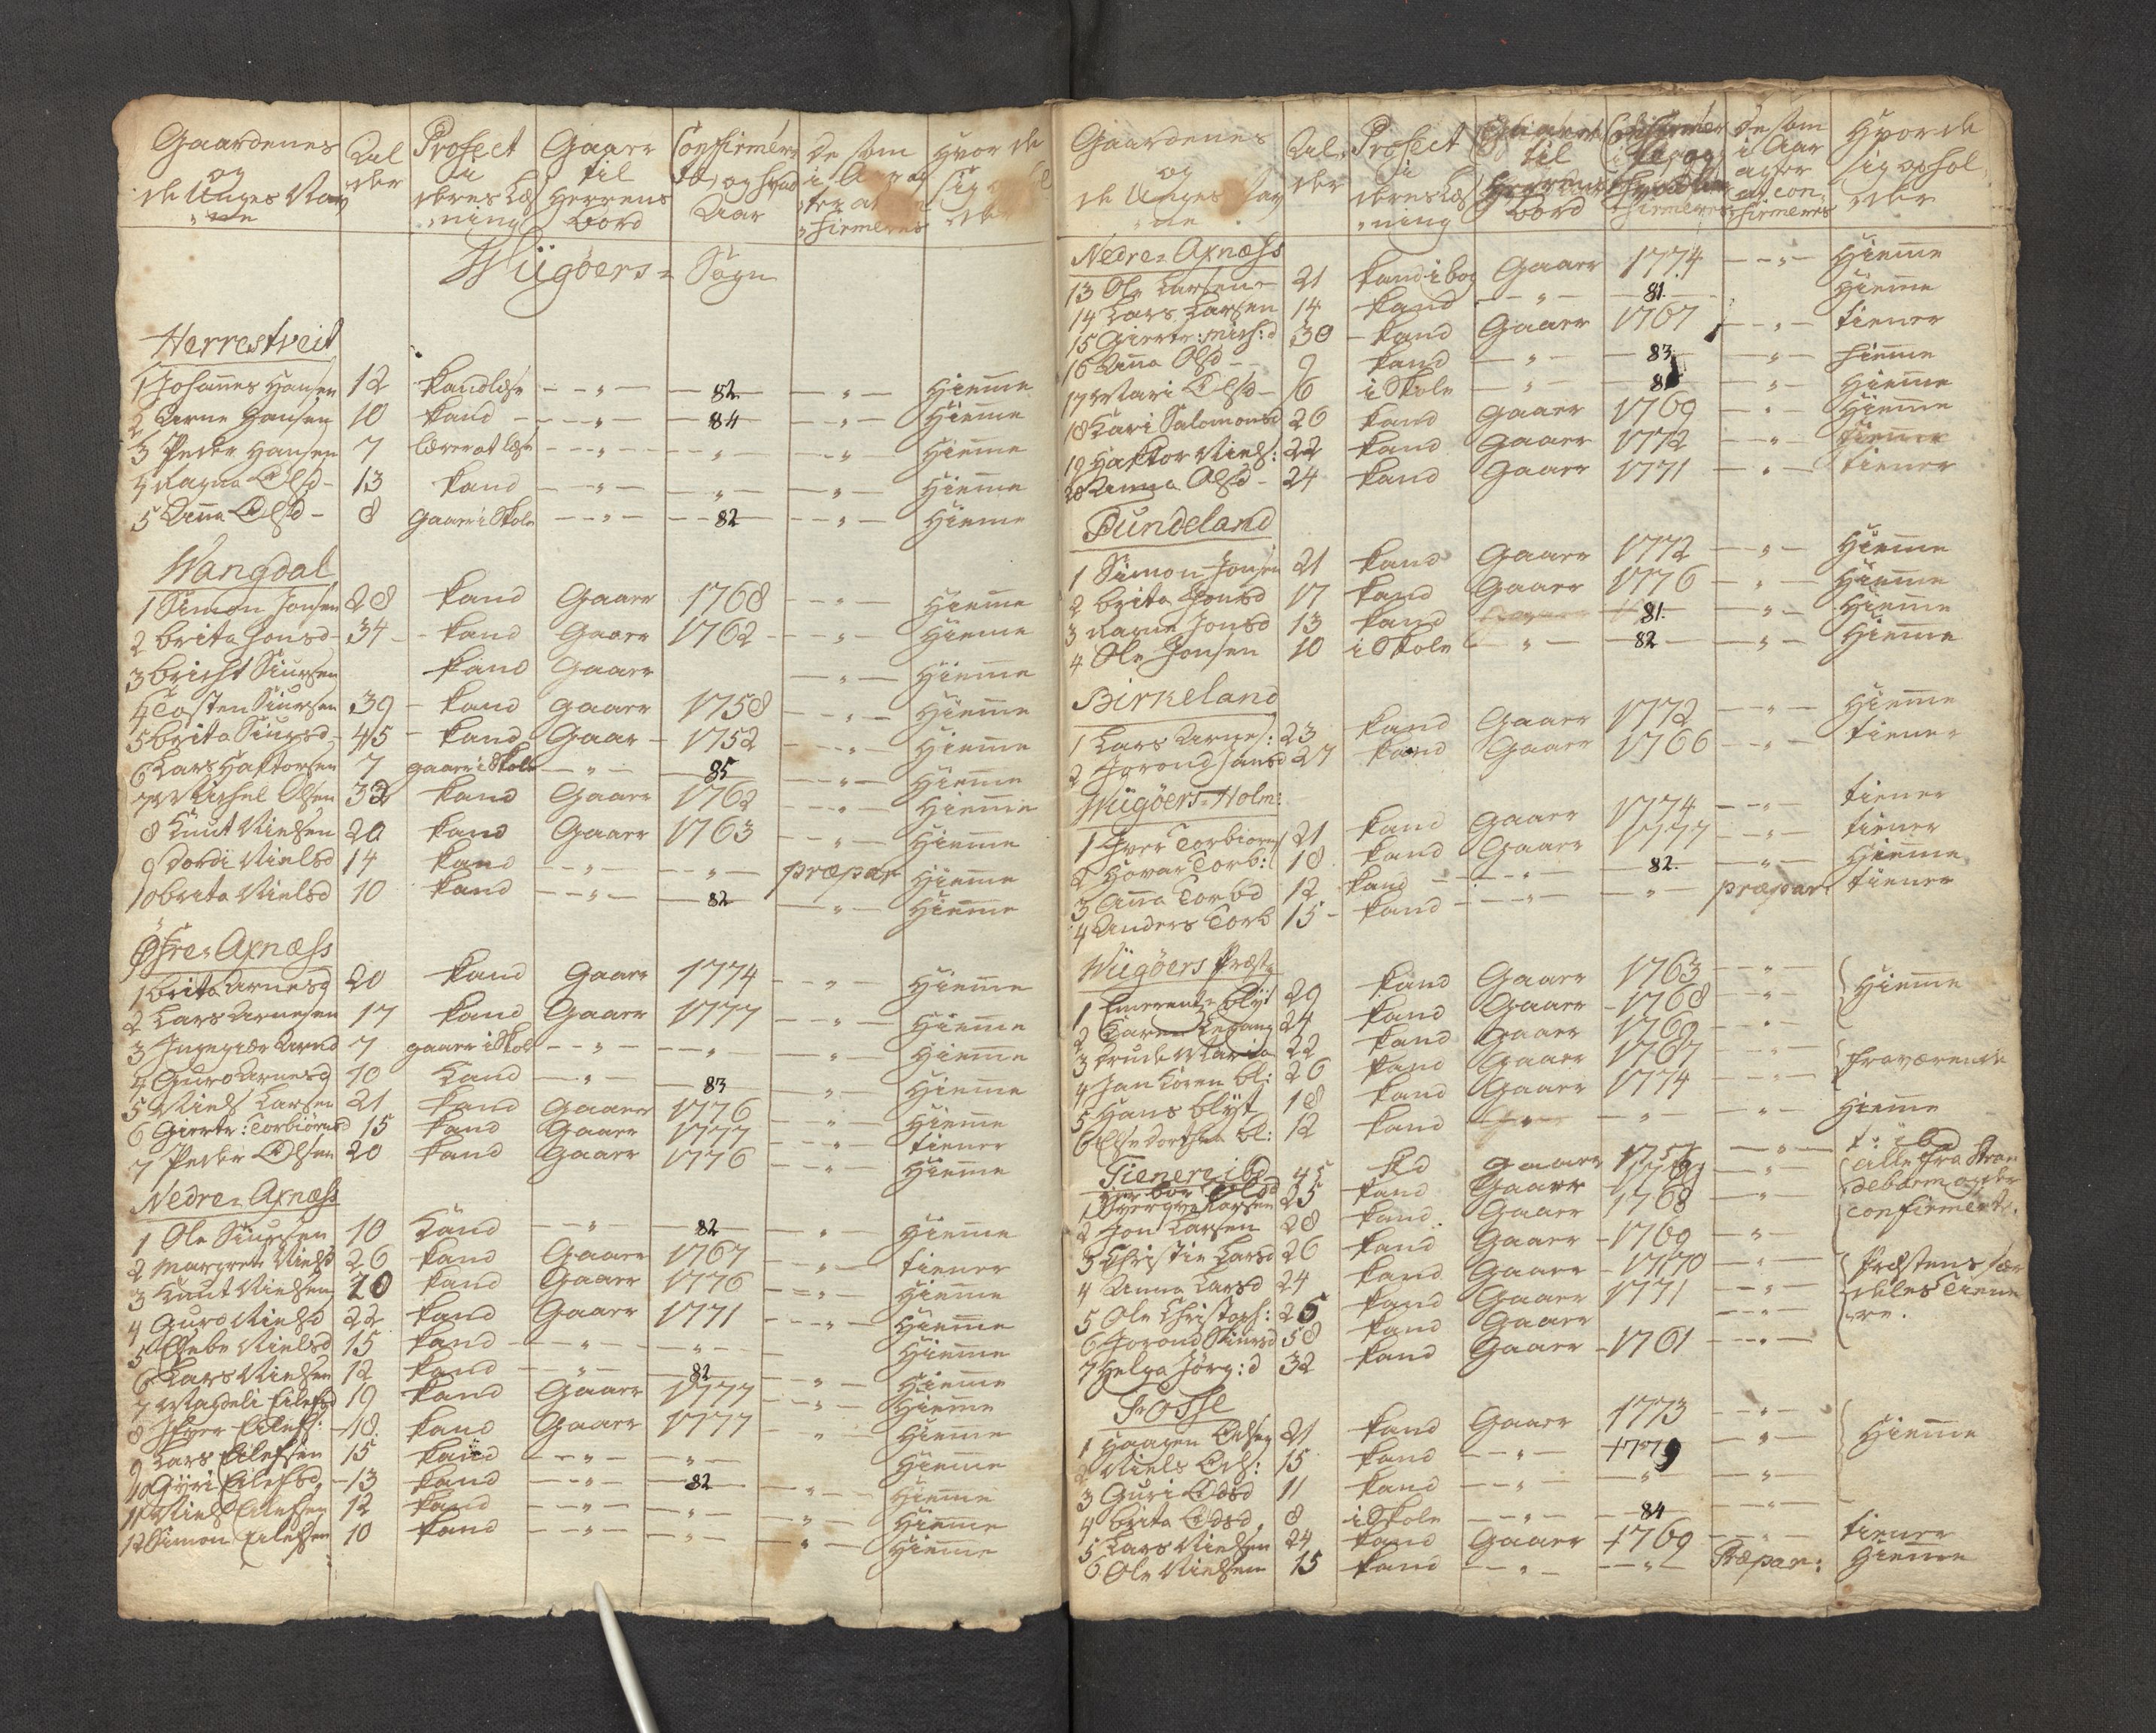 Gaardenes og de Unges Navne | Alder | Profect i deres Læsning | Gaaer til Herrens bord | Confirmerede, og hvad Aar | De som i Aar agter at confirmeres | Hvor de sig opholder
Wiigøers Sogn
Herrestveit
1 Johannes Hansen 12 kand læse — " — 82 — " — Hiemme
2 Arne Hansen 10 kand — " — 84 — " — Hiemme
3 Peder Hansen 7 lærer at læse — " — — " — — " — Hiemme
4 Ragna Olsd 13 kand — " — — " — — " — Hiemme
5 Anna Olsd 8 gaaer i Skole — " — 82 — " — Hiemme
Wangdal
1 Simon Jonsen 28 kand Gaaer 1768 — " — Hiemme
2 brita Jonsd 34 kand Gaaer 1762 — " — Hiemme
3 bricht Siursen kand Gaaer — " — Hiemme
4 Tosten Siursen 39 kand gaaer 1758 — " — Hiemme
5 brita Siursd 45 kand Gaar 1752 — " — Hiemme
6 Lars Haktorsen 7 gaaer i Skole — " — 85 — " — Hiemme
7 Michel Olsen 32 kand Gaaer 1762 — " — Hiemme
8 Knut Nielsen 20 kand Gaaer 1763 — " — Hiemme
9 Dordi Nielsd 14 kand — " — — " — præpar Hiemme
10 brita Nielsd 10 kand — " — 82 — " — Hiemme
Øfre Axnæss
1 brita Arnesd 20 kand Gaaer 1774 — " — Hiemme
2 Lars Arnesen 17 kand Gaaer 1777 — " — Hiemme
3 Ingegiær Arnd 7 gaaer i Skol — " — — " — — " — Hiemme
4 Guro Arnesd 10 kand — " — 83 — " — Hiemme
5 Niels Larsen 21 kand Gaaer 1776 — " — Hiemme
6 Giertr: Torbiørnsd 15 kand Gaaer 1777 — " — tiener
7 Peder Olsen 20 kand Gaaer 1776 — " — Hiemme
Nedre Axnæss
1 Ole Siursen 10 kand — " — 82 — " — Hiemme
2 Margrete Nielsd 26 kand Gaaer 1767 — " — tiener
3 Knut Nielsen 20 kand Gaaer 1776 — " — Hiemme
4 Guro Nielsd 22 kand Gaaer 1771 — " — Hiemme
5 Elsebe Nielsd 15 kand — " — — " — Hiemme
6 Lars Nielsen 12 kand — " — 82 — " — Hiemme
7 Magdeli Eilefsd 19 kand Gaaer 1777 — " — Hiemme
8 Ifver Eilefs: 18 kand Gaaer 1777 — " — Hiemme
9 Lars Eilefsen 15 kand — " — — " — Hiemme
10 Gyri Eilefsd 13 kand — " — 82 — " — Hiemme
11 Niels Eilefsen 12 kand — " — — " — — " — Hiemme
12 Simon Eilefsen 10 kand — " — — " — — " — Hiemme
Gaardenes og de Unges Navne | Alder | Profect i deres Læsning | Gaaer til Herrens bord | Confirmerede og hvad Aar | De som i Aar agter at confirmeres | Hvor de sig opholder
Nedre Axnæss
13 Ole Larsen 21 kand i bog Gaaer 1774 — " — Hiemme
14 Lars Larsen 14 kand — " — 81. Hiemme
15 Giertr: Mich: d 30 kand Gaaer 1767 — " — tiener
16 Anna Olsd 9 kand — " — 83 — " — hiemme
17 Mari Olsd 6 i Skole — " — 85 — " — Hiemme
18 Kari Salomonsd 26 kand gaaer 1769 — " — Hiemme
19 Haktor Niels: 22 kand gaaer 1772 — " — tiener
20 Anna Olsd 24 kand Gaaer 1771 — " — tiener
Tundeland
1 Simon Jonsen 21 kand Gaaer 1772 — " — Hiemme
2 brita Jonsd 17 kand Gaaer 1776 — " — Hiemme
3 Ragne Jonsd 13 kand 81. — " — Hiemme
4 Ole Jonsen 10 i Skole — " — 82 — " — Hiemme
Birkeland
1 Lars Arnes: 23 kand Gaaer 1772 — " — Hiemme
2 Jorond Jansd 27 kand Gaaer 1766 — " — tiener
Wiigøers Holm:
1 Iver Torbiøren 21 kand Gaaer 1774 — " — tiener
2 Hovar Torb: 18 kand Gaaer 1777 — " — tiener
3 Anna Torbd 12 kand — " — 82. — " — Hiemme
4 Anders Torb 15 kand — " — — " — præpar: tiener
Wiigøers Præst:
1 Emerentz blyt 29 kand Gaaer 1763 — " — Hiemme
2 Karen Legang 24 kand Gaaer 1768 — " —
3 Frude Maria 22 kand Gaaer 1769 — " —
4 Jan Køren bl: 26 kand Gaaer 1767 — " — fraværende
5 Hans blyt 18 kand Gaaer 1774 — " —
6 Else Dorthea bl: 12 kand — " — — " — Hiemme
Tienere ibd
45 kd gaaer — " — t: ibd
1 Larsen 25 kand Gaaer — " — alle fra Stran
2 Jon Larsen 28 kand Gaaer 1768 — " — debarm og der confirmerte.
3 Christie Larsd 26 kand Gaaer 1769 — " —
4 Anna Larsd 24 kand Gaaer 1770 — " — Præstens sær
5 Ole Christoph: 25 kand Gaaer 1771 — " — deles Tiene
6 Jorond Siursd 58 kand Gaaer — " — re.
7 Helga Jørg: d 32 kand Gaaer 1761 — " —
Fosse
1 Haagen Odsen 21 kand Gaaer 1773 — " — Hiemme
2 Niels Ods: 15 kand — " — 1779 — " —
3 Guri Odsd 11 kand — " — — " — — " —
4 brita Odsd 8 i Skole — " — 84 — " —
5 Lars Nielsen 24 kand Gaaer 1769 — " — tiener
6 Ole Nielsen 15 kand — " — — " — Præpar: Hiemme